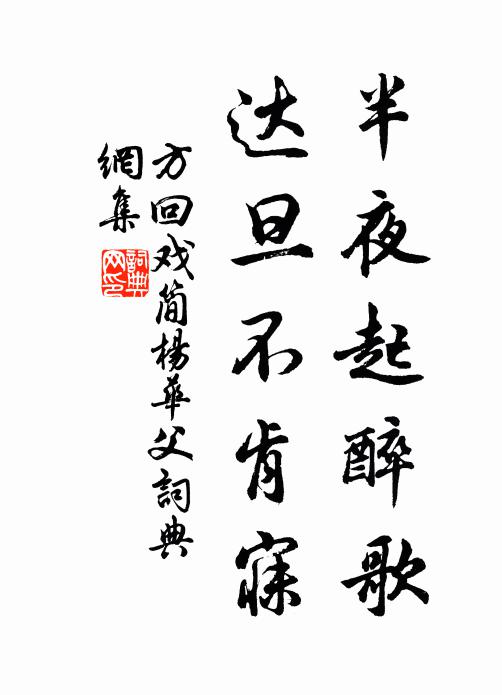 半夜起醉歌
达旦不肯寐
方回戏简楊華父詞典
網集
詞典
网印